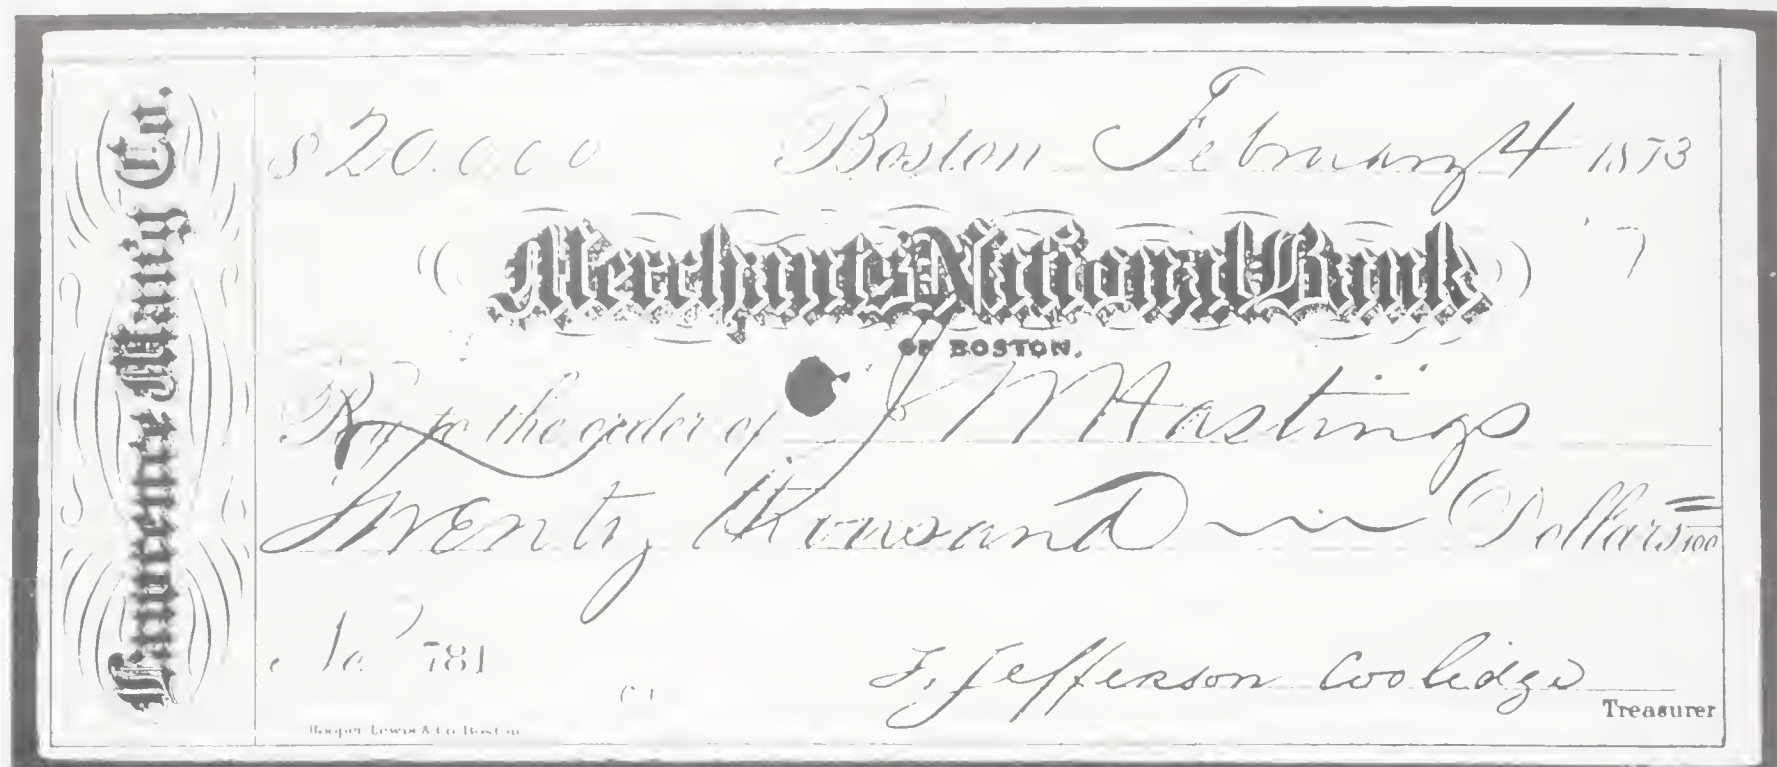 Lawrence Manfg Co.
$20.000 Boston February 4 1873
Merchants National Bank
OF BOSTON.
Pay to the order of J M Hastings
Twenty thousand Dollars 100
No 781
T. Jefferson Coolidge
Treasurer
Hooper Lewis & Co Boston